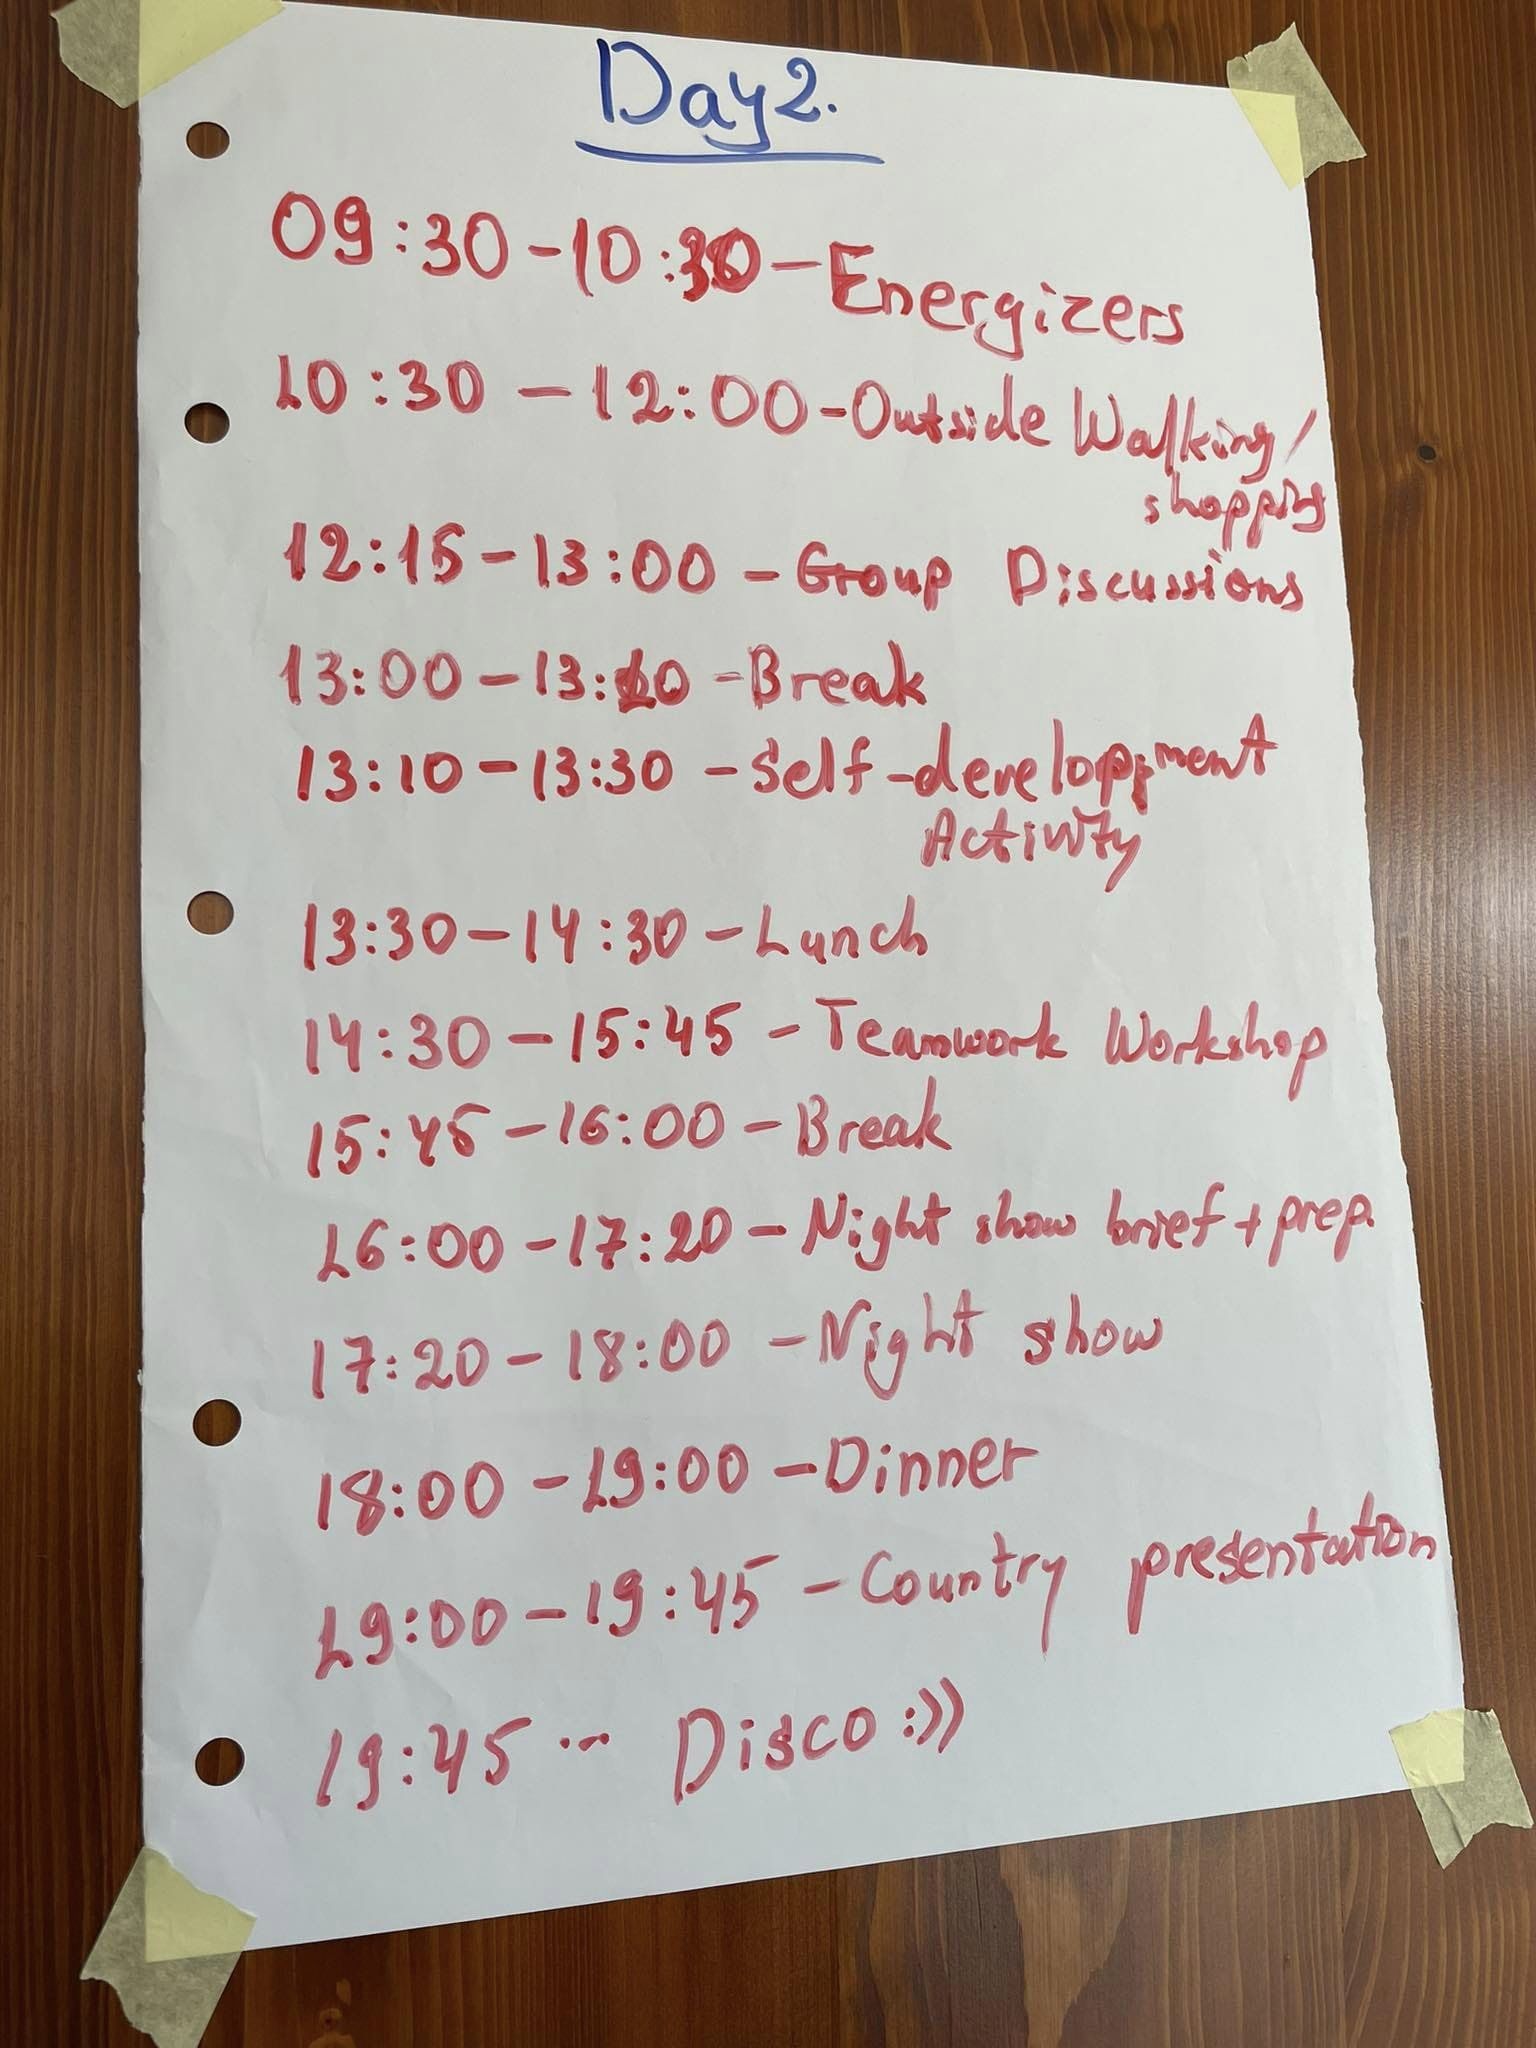 Day 2.
09:30 - 10:30 - Energizers
10:30 - 12:00 - Outside Walking/
shopping
12:15 - 13:00 - Group Discussions
13:00 - 13:10 - Break
13:10 - 13:30 - Self-developpment
Activity
13:30 - 14:30 - Lunch
14:30 - 15:45 - Teamwork Workshop
15:45 - 16:00 - Break
16:00 - 17:20 - Night show brief + prep.
17:20 - 18:00 - Night show
18:00 - 19:00 - Dinner
19:00 - 19:45 - Country presentation
19:45 ... Disco :))